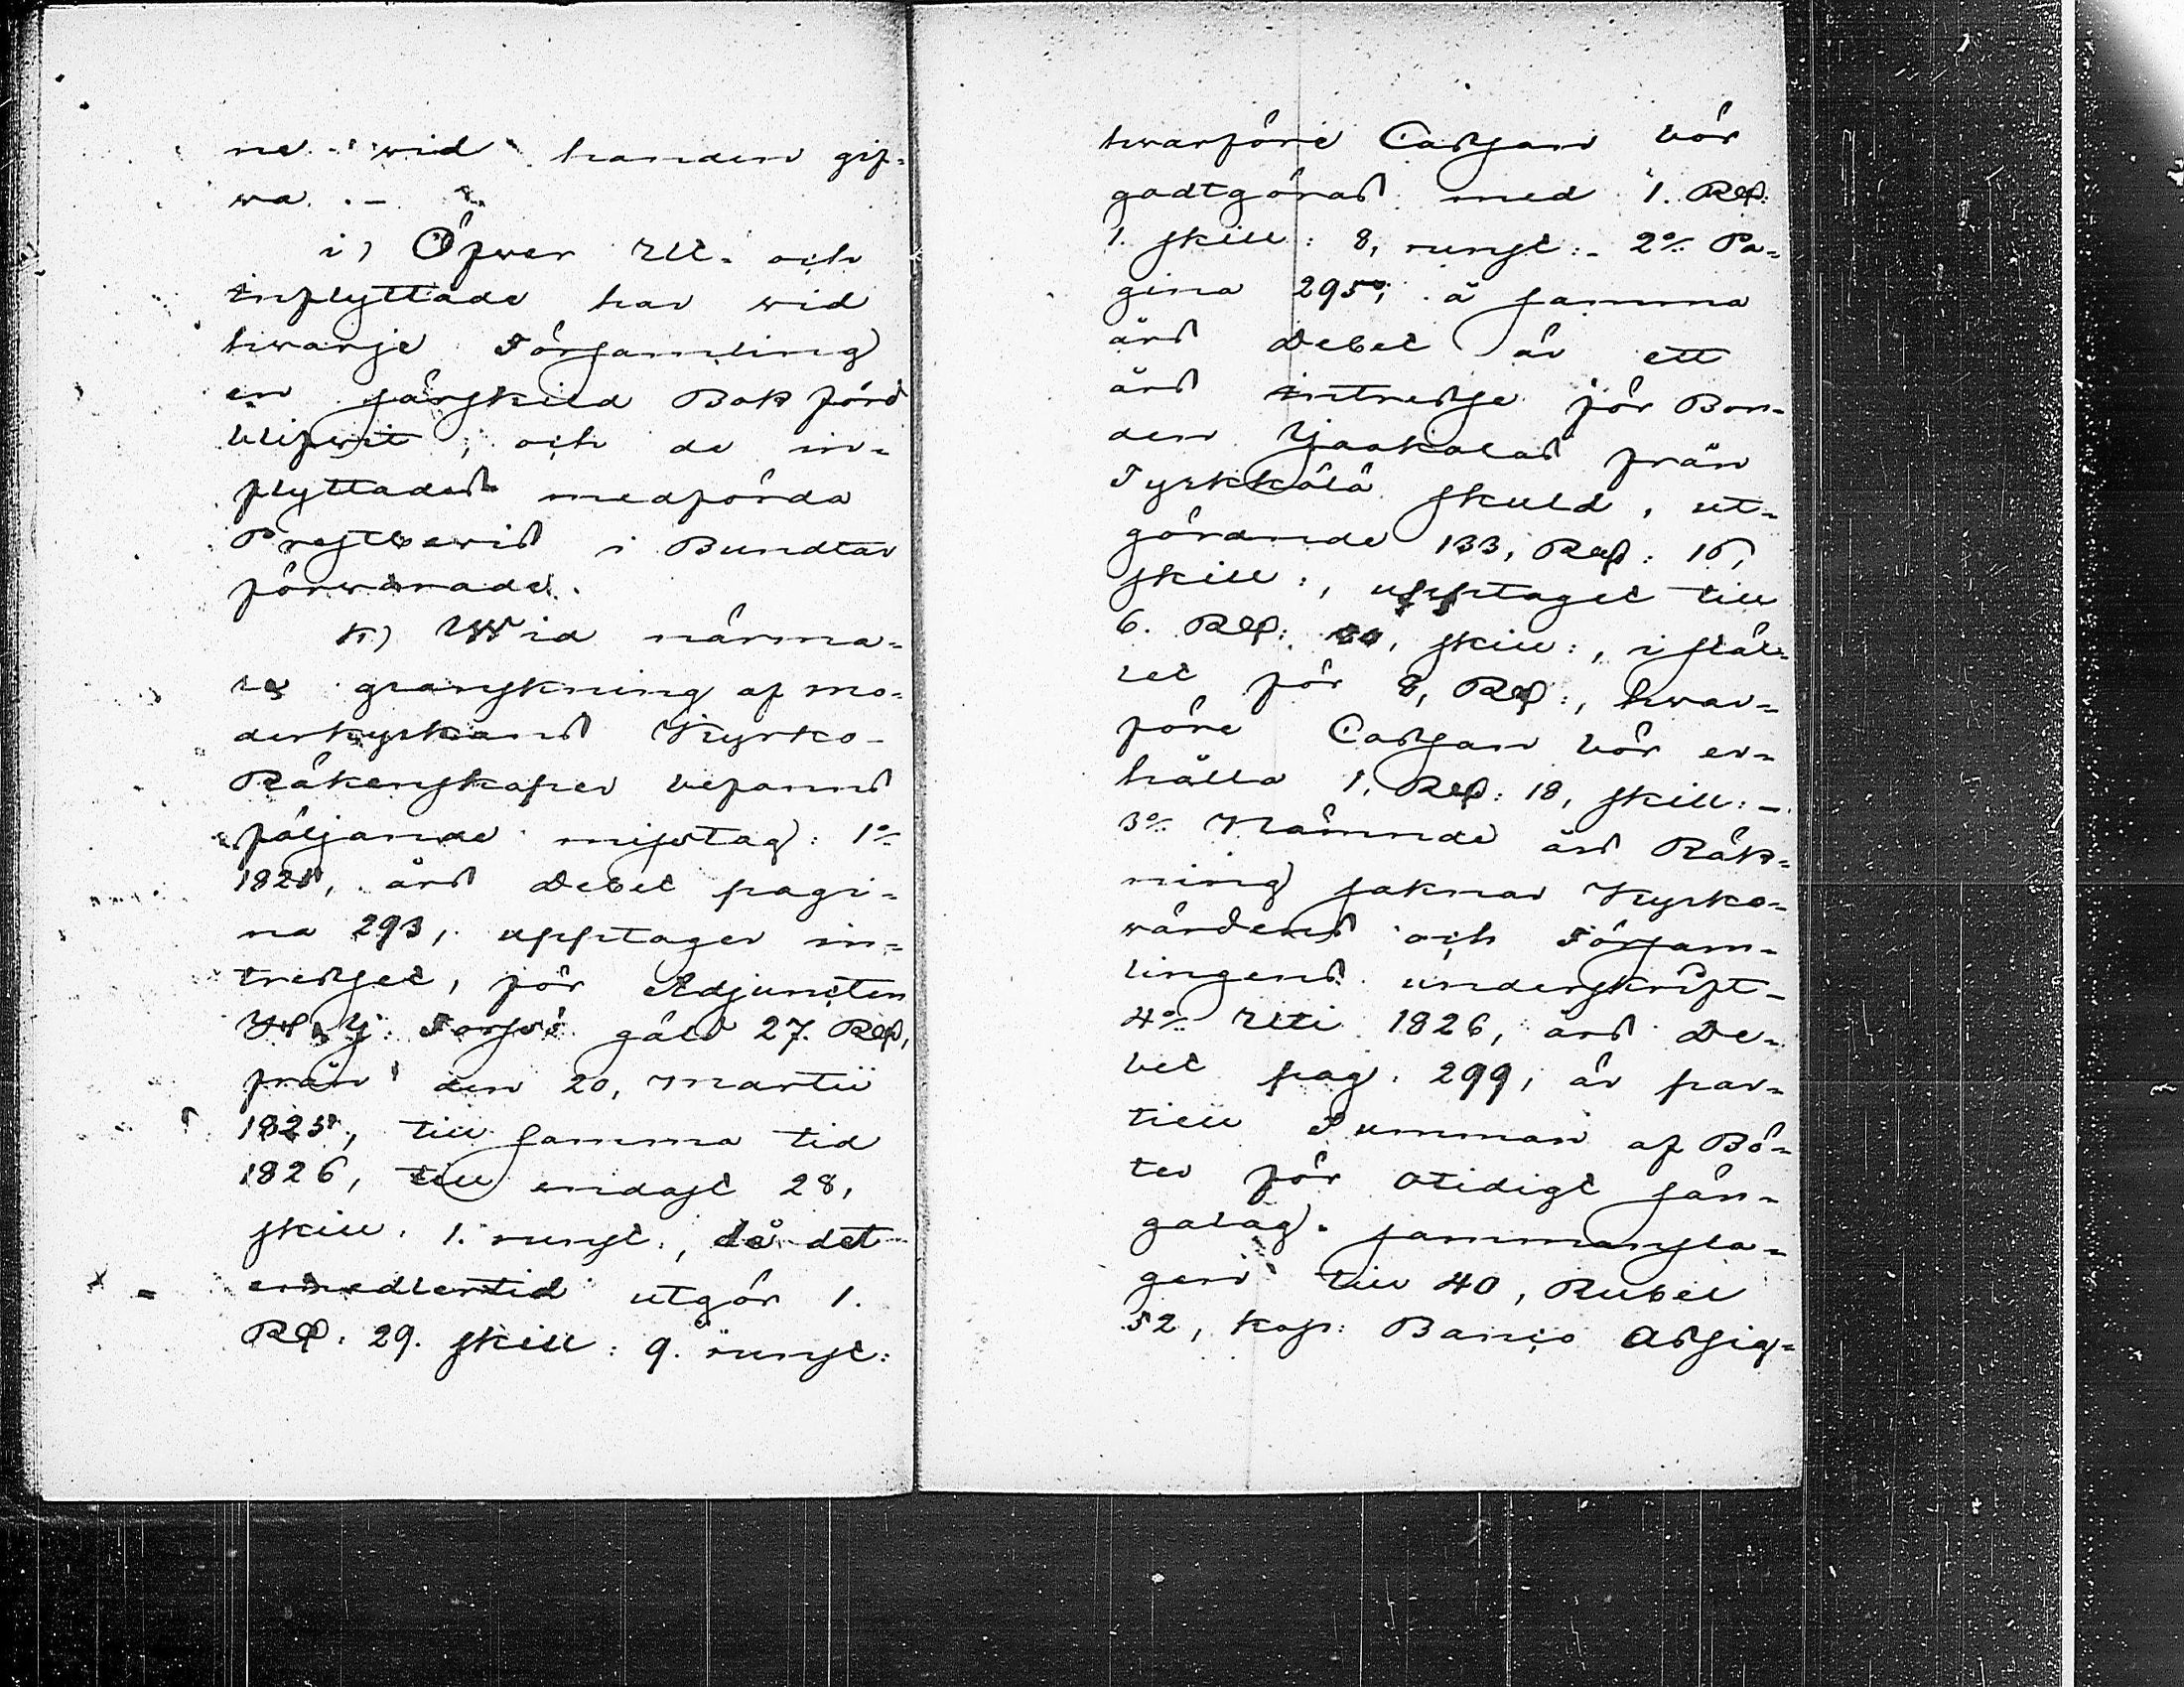 ne wid handen gif-
wa. -
i) Öfwer Ut- och
inflyttade har wid
hwarje Församling
en särskild Bok förd
blifwit, och de in-
flyttades medförda
Prestbewis i Bundtar
förwarade.
k) Wid närma-
re granskning af mo-
derkyrkans Kyrko-
Räkenskaper befanns
följande misstag: 1:o
1825, års Debet pagi-
na 293, upptager in-
tresset, för Adjuncten
gäld 27. Rub,
från den 20, Martii
1825, till samma tid
1826, till endast 28,
skill. 1. runst., då det
emedlertid utgör 1.
Rub: 29. skill: 9. runst:
hwarföre Cassan bör
godtgöras med 1. Rub:
1. skill: 8, runst:- 2:o Pa-
gina 295, å samma
års Debet är ett
års intresse för Bon-
den Jaakolas från
Tyrkkölä skuld, ut-
görande 133, Rub: 16,
skill:, upptaget till
6. Rub: 30, skill:, i stäl-
let för 8, Rub:, hwar-
före Cassan bör er-
hålla 1, Rub: 18, skill: -
3:o Nämnde års Räk-
ning saknar Kyrko-
wärdens och Försam-
lingens underskrift-
4:o Uti 1826, års De-
bet pag. 299, är par-
tiell Summan af Bö-
ter för otidigt sän-
galag. sammansla-
gen till 40, Rubel
52, kop: Banco Assig-